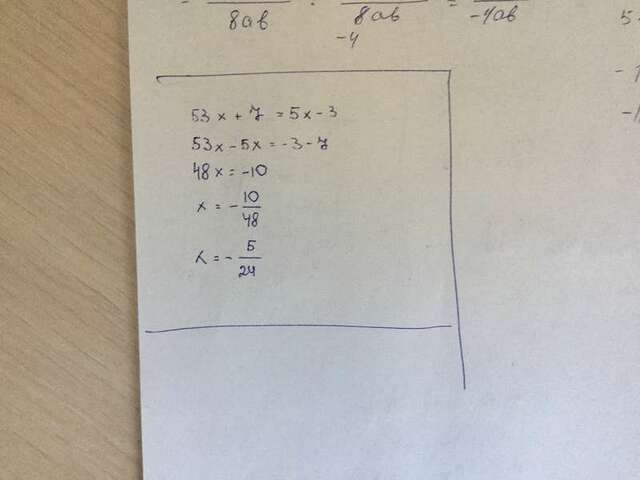 - 8ab : 8ab = -4ab
-4
5
-1
-1
53x + 7 = 5x - 3
53x - 5x = -3 - 7
48x = -10
x = - 10/48
x = - 5/24